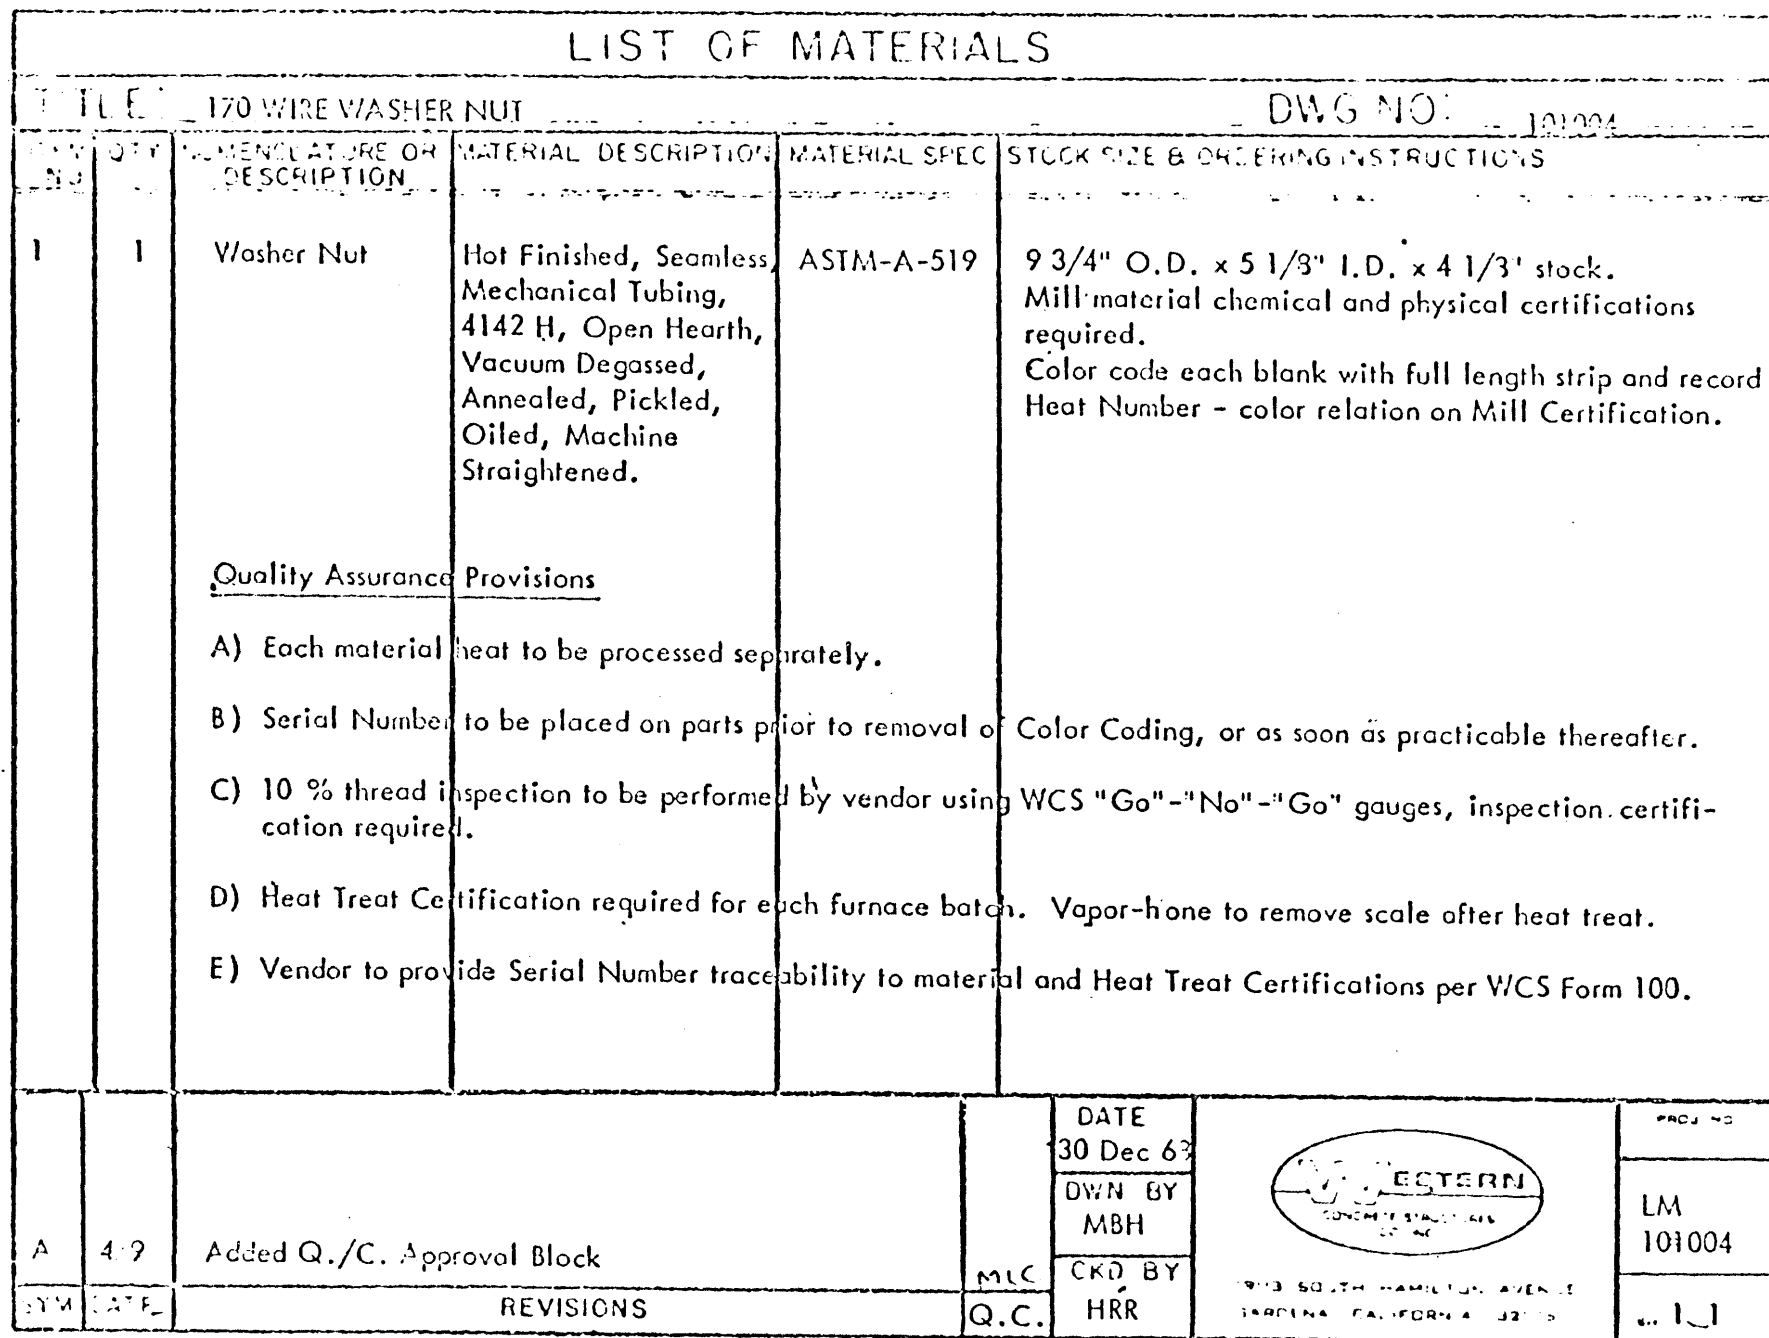 LIST OF MATERIALS
TITLE: 170 WIRE WASHER NUT DWG NO: 101004
NO QTY NOMENCLATURE OR DESCRIPTION MATERIAL DESCRIPTION MATERIAL SPEC STOCK SIZE & ORDERING INSTRUCTIONS
1 1 Washer Nut
Hot Finished, Seamless,
Mechanical Tubing,
4142 H, Open Hearth,
Vacuum Degassed,
Annealed, Pickled,
Oiled, Machine
Straightened.
ASTM-A-519
9 3/4" O.D. x 5 1/8" I.D. x 4 1/3' stock.
Mill material chemical and physical certifications
required.
Color code each blank with full length strip and record
Heat Number - color relation on Mill Certification.
Quality Assurance Provisions
A) Each material heat to be processed separately.
B) Serial Number to be placed on parts prior to removal of Color Coding, or as soon as practicable thereafter.
C) 10 % thread inspection to be performed by vendor using WCS "Go"-"No"-"Go" gauges, inspection certifi-
cation required.
D) Heat Treat Certification required for each furnace batch. Vapor-hone to remove scale after heat treat.
E) Vendor to provide Serial Number traceability to material and Heat Treat Certifications per WCS Form 100.
A Added Q./C. Approval Block
SYM DATE REVISIONS
MLC
Q.C.
DATE
30 Dec
DWN BY
MBH
CKD BY
HRR
WESTERN
CONCRETE STRUCTURES
CO INC
SOUTH HAMILTON AVENUE
GARDENA CALIFORNIA
PROJ NO
LM
101004